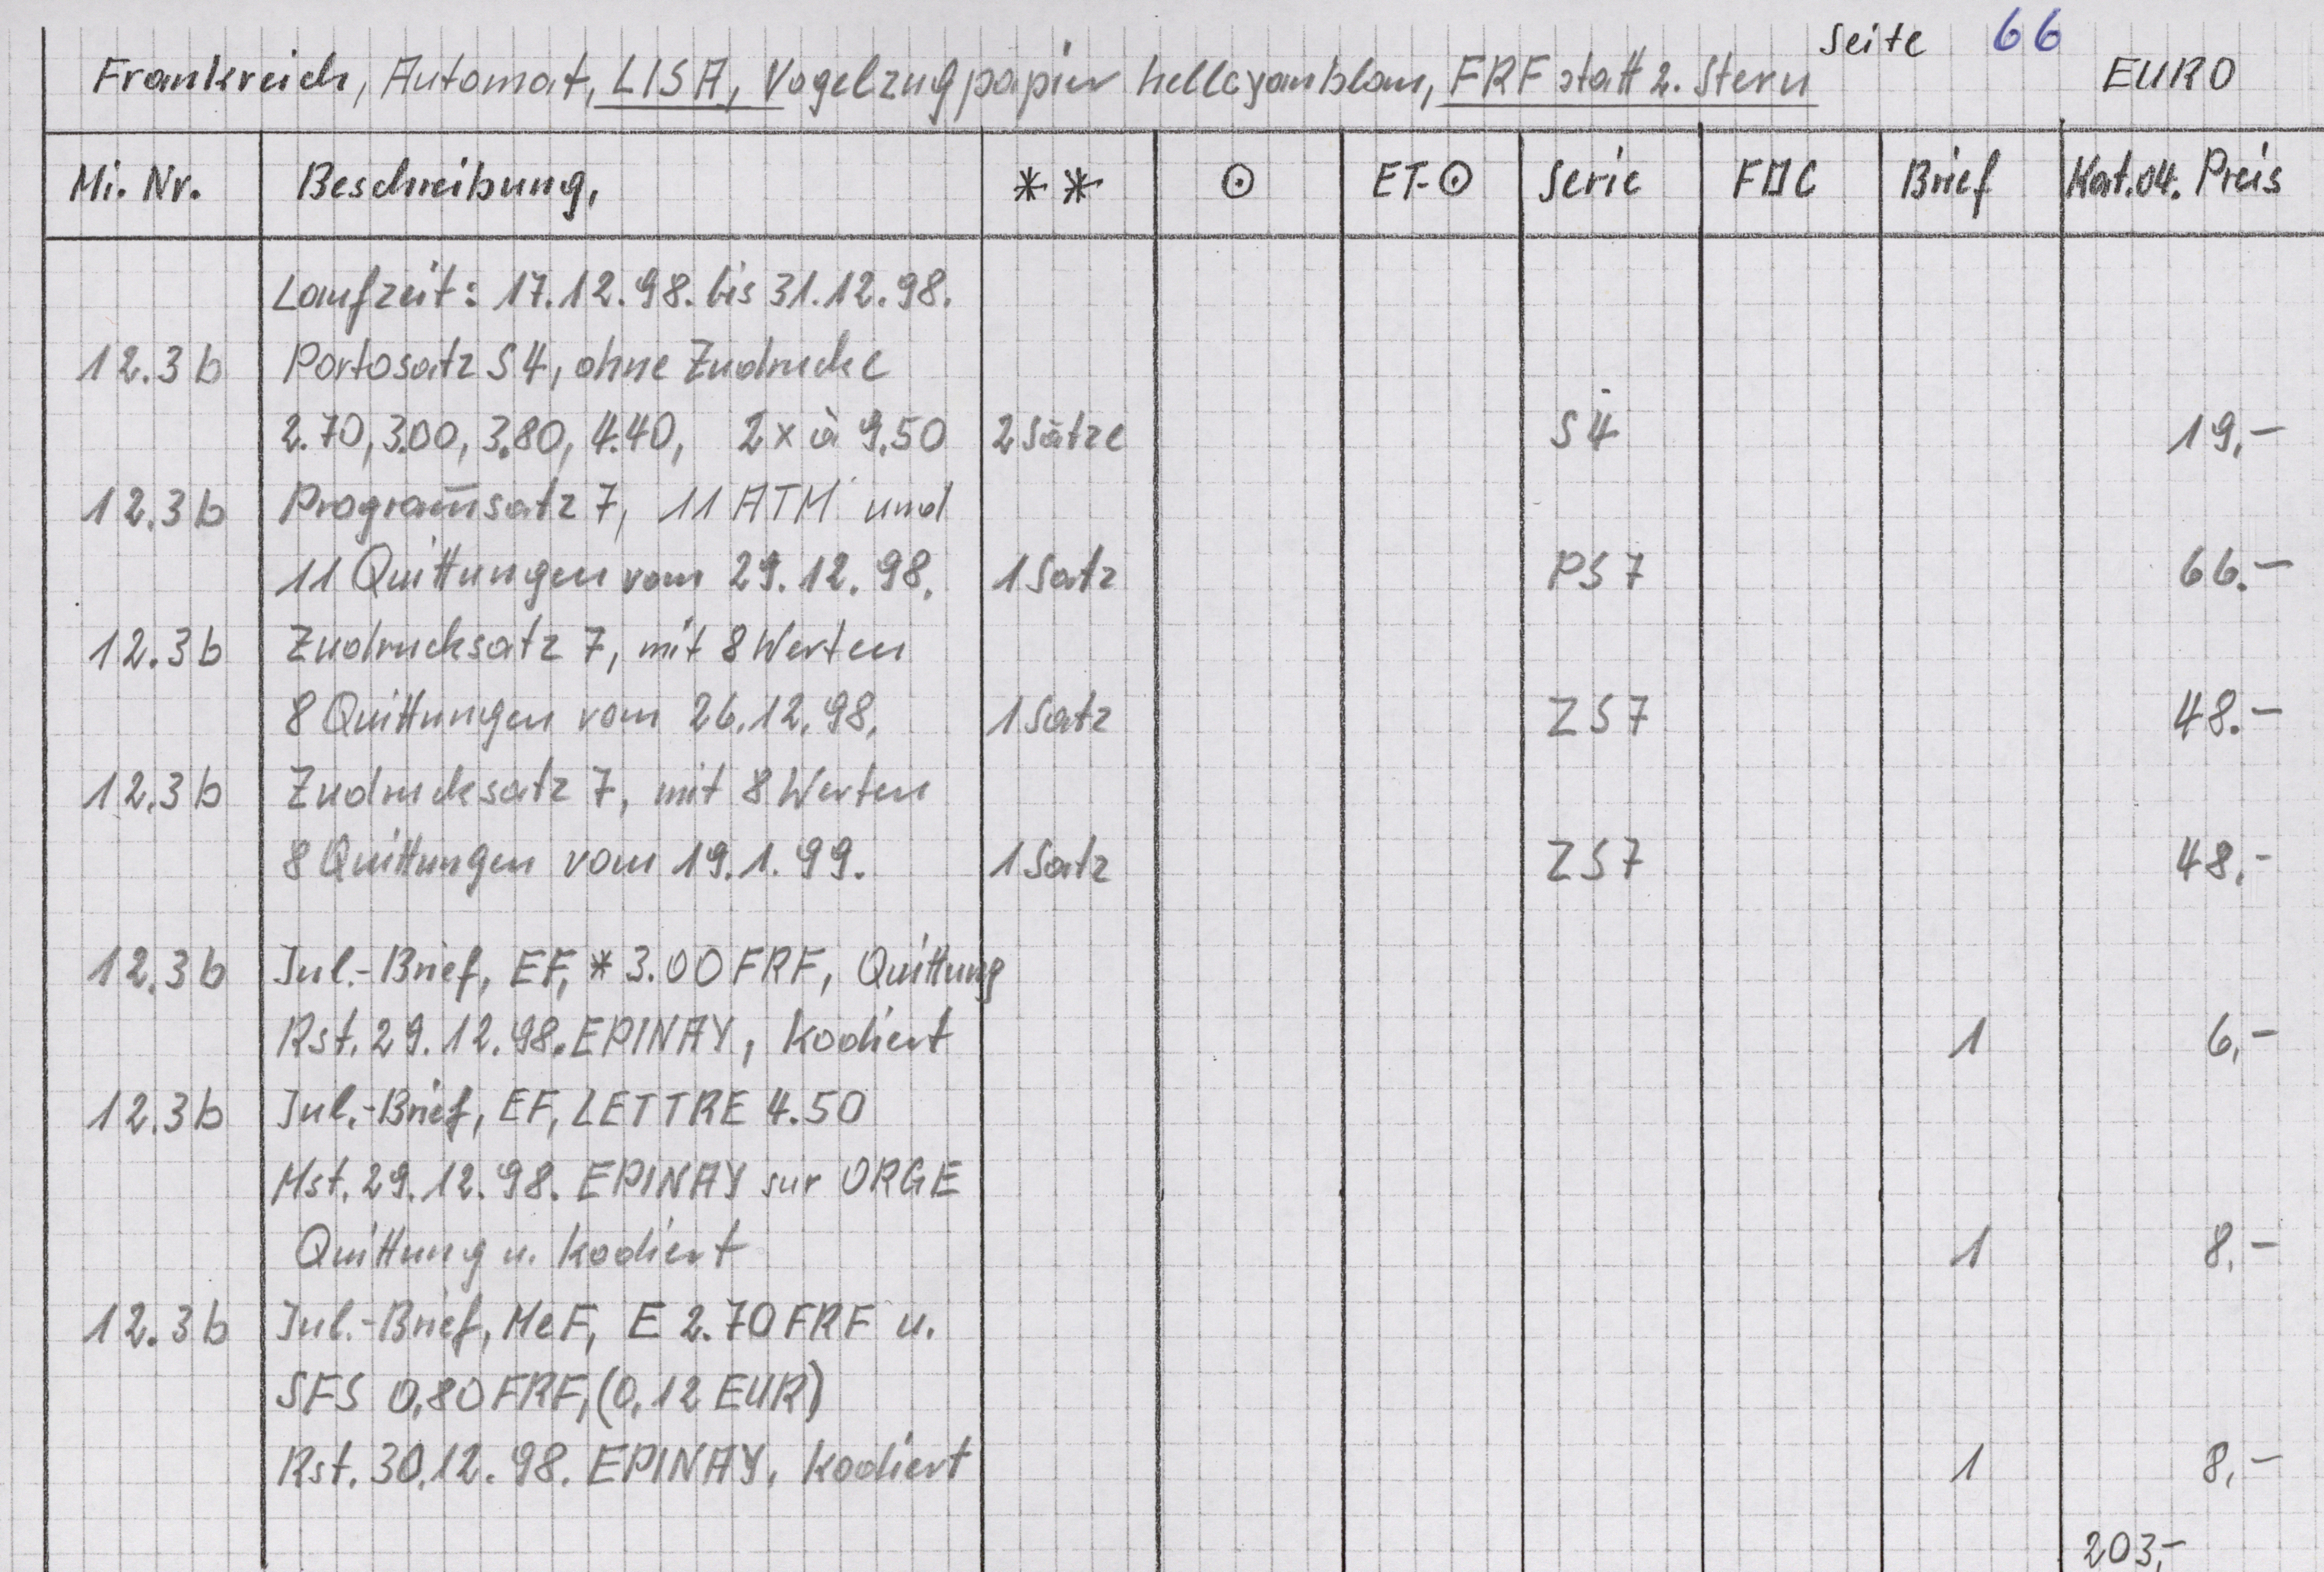 Seite 66
Frankreich, Automat, LISA, Vogelzugpapier hellcyanblau, FRF statt 2. Stern EURO
Mi. Nr. Beschreibung, ** ⊙ ET-⊙ Serie FDC Brief Kat.04. Preis
Laufzeit: 17.12.98. bis 31.12.98.
12.3b Portosatz S4, ohne Zudrucke
2.70, 3.00, 3.80, 4.40, 2x à 9.50 2 Sätze S4 19,-
12.3b Programm̅satz 7, 11 ATM und
11 Quittungen vom 29.12.98. 1 Satz PS7 66.-
12.3b Zudrucksatz 7, mit 8 Werten
8 Quittungen vom 26.12.98. 1 Satz ZS7 48.-
12.3b Zudrucksatz 7, mit 8 Werten
8 Quittungen vom 19.1.99. 1 Satz ZS7 48,-
12.3b Inl.-Brief, EF, * 3.00 FRF, Quittung
Rst. 29.12.98. EPINAY, kodiert 1 6,-
12.3b Inl.-Brief, EF, LETTRE 4.50
Mst. 29.12.98. EPINAY sur ORGE
Quittung u. kodiert 1 8,-
12.3b Inl.-Brief, MeF, E 2.70 FRF u.
SFS 0,80 FRF, (0,12 EUR)
Rst. 30.12.98. EPINAY, kodiert 1 8,-
203,-